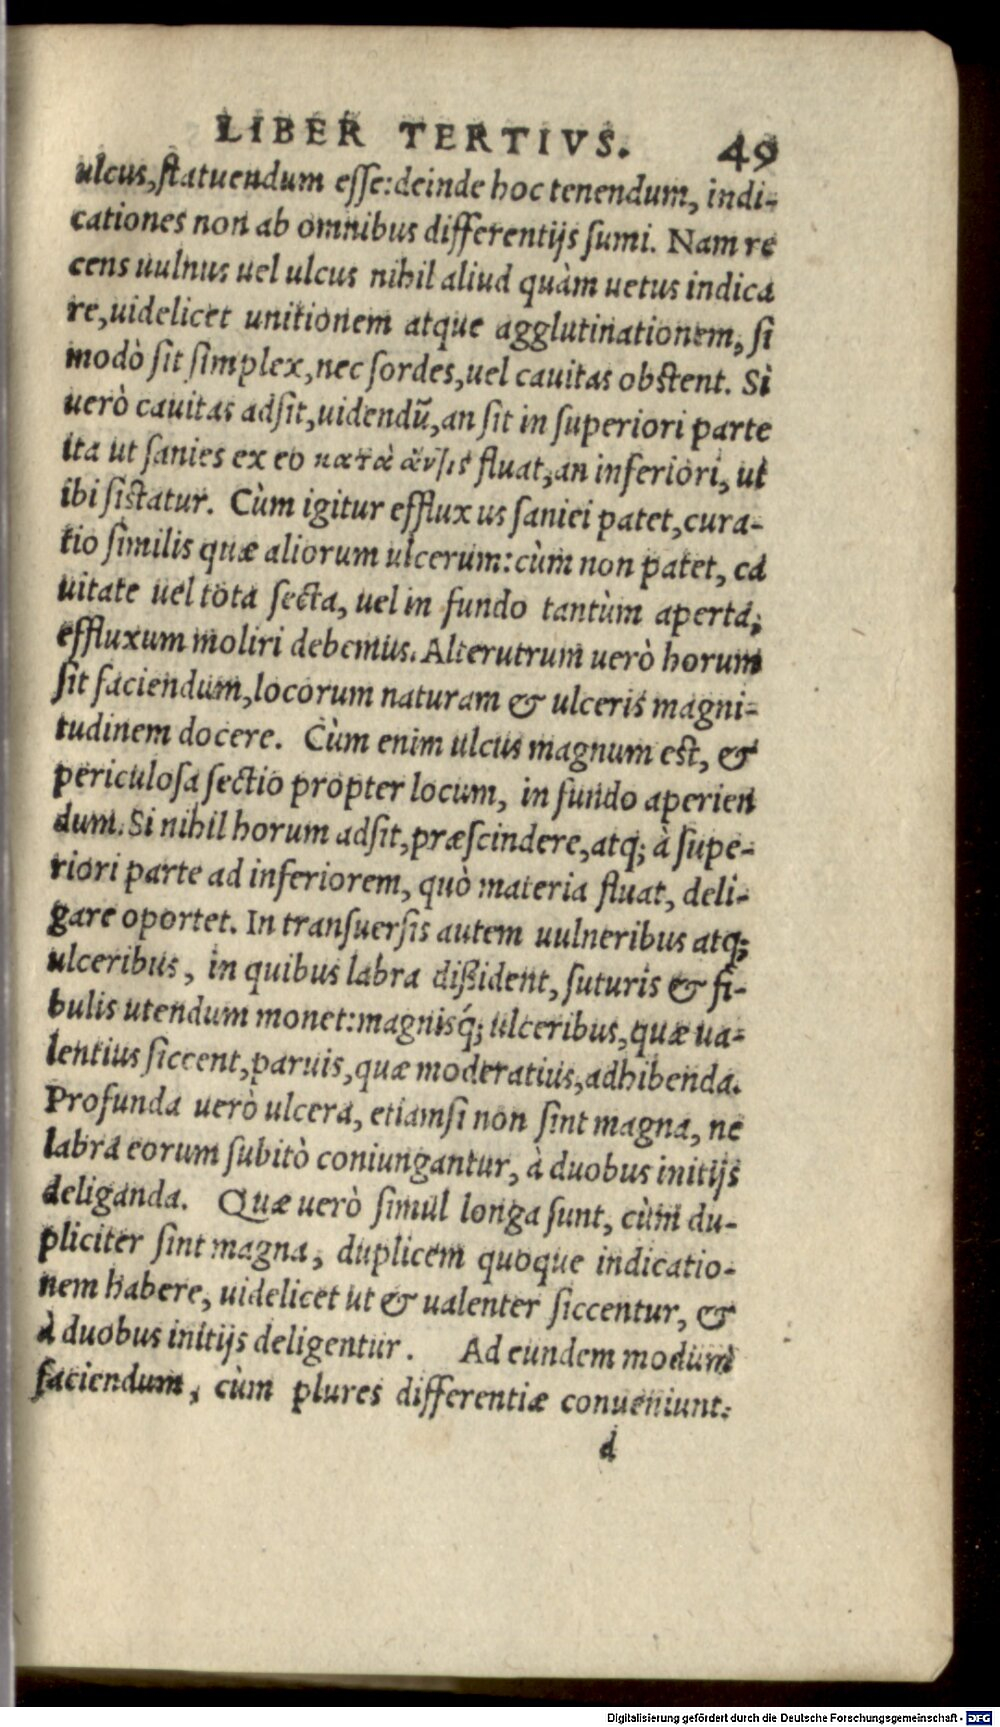 LIBER TERTIVS. 49
ulcus, statuendum esse: deinde hoc tenendum, indi-
cationes non ab omnibus differentijs sumi. Nam re
cens uulnus uel ulcus nihil aliud quàm uetus indica
re, uidelicet unitionem atque agglutinationem, si
modò sit simplex, nec sordes, uel cauitas obstent. Sì
uerò cauitas adsit, uidendũ, an sit in superiori parte
ita ut sanies ex eo fluat, an inferiori, ut
ibi sistatur. Cùm igitur effluxus saniei patet, cura-
tio similis quæ aliorum ulcerum: cùm non patet, ca
uitate uel tota secta, uel in fundo tantùm aperta,
effluxum moliri debemus. Alterutrum uerò horum
sit faciendum, locorum naturam & ulceris magni-
tudinem docere. Cùm enim ulcus magnum est, &
periculosa sectio propter locum, in fundo aperien
dum. Si nihil horum adsit, præscindere, atq; à supe-
riori parte ad inferiorem, quò materia fluat, deli-
gare oportet. In transuersis autem uulneribus atq;
ulceribus, in quibus labra dißident, suturis & fi-
bulis utendum monet: magnisq́; ulceribus, quæ ua-
lentius siccent, paruis, quæ moderatius, adhibenda.
Profunda uerò ulcera, etiamsi non sint magna, ne
labra eorum subitò coniungantur, à duobus initijs
deliganda. Quæ uerò simul longa sunt, cùm du-
pliciter sint magna, duplicem quoque indicatio-
nem habere, uidelicet ut & ualenter siccentur, &
à duobus initijs deligentur. Ad eundem modum
faciendum, cùm plures differentiæ conueniunt:
d
Digitalisierung gefördert durch die Deutsche Forschungsgemeinschaft - DFG